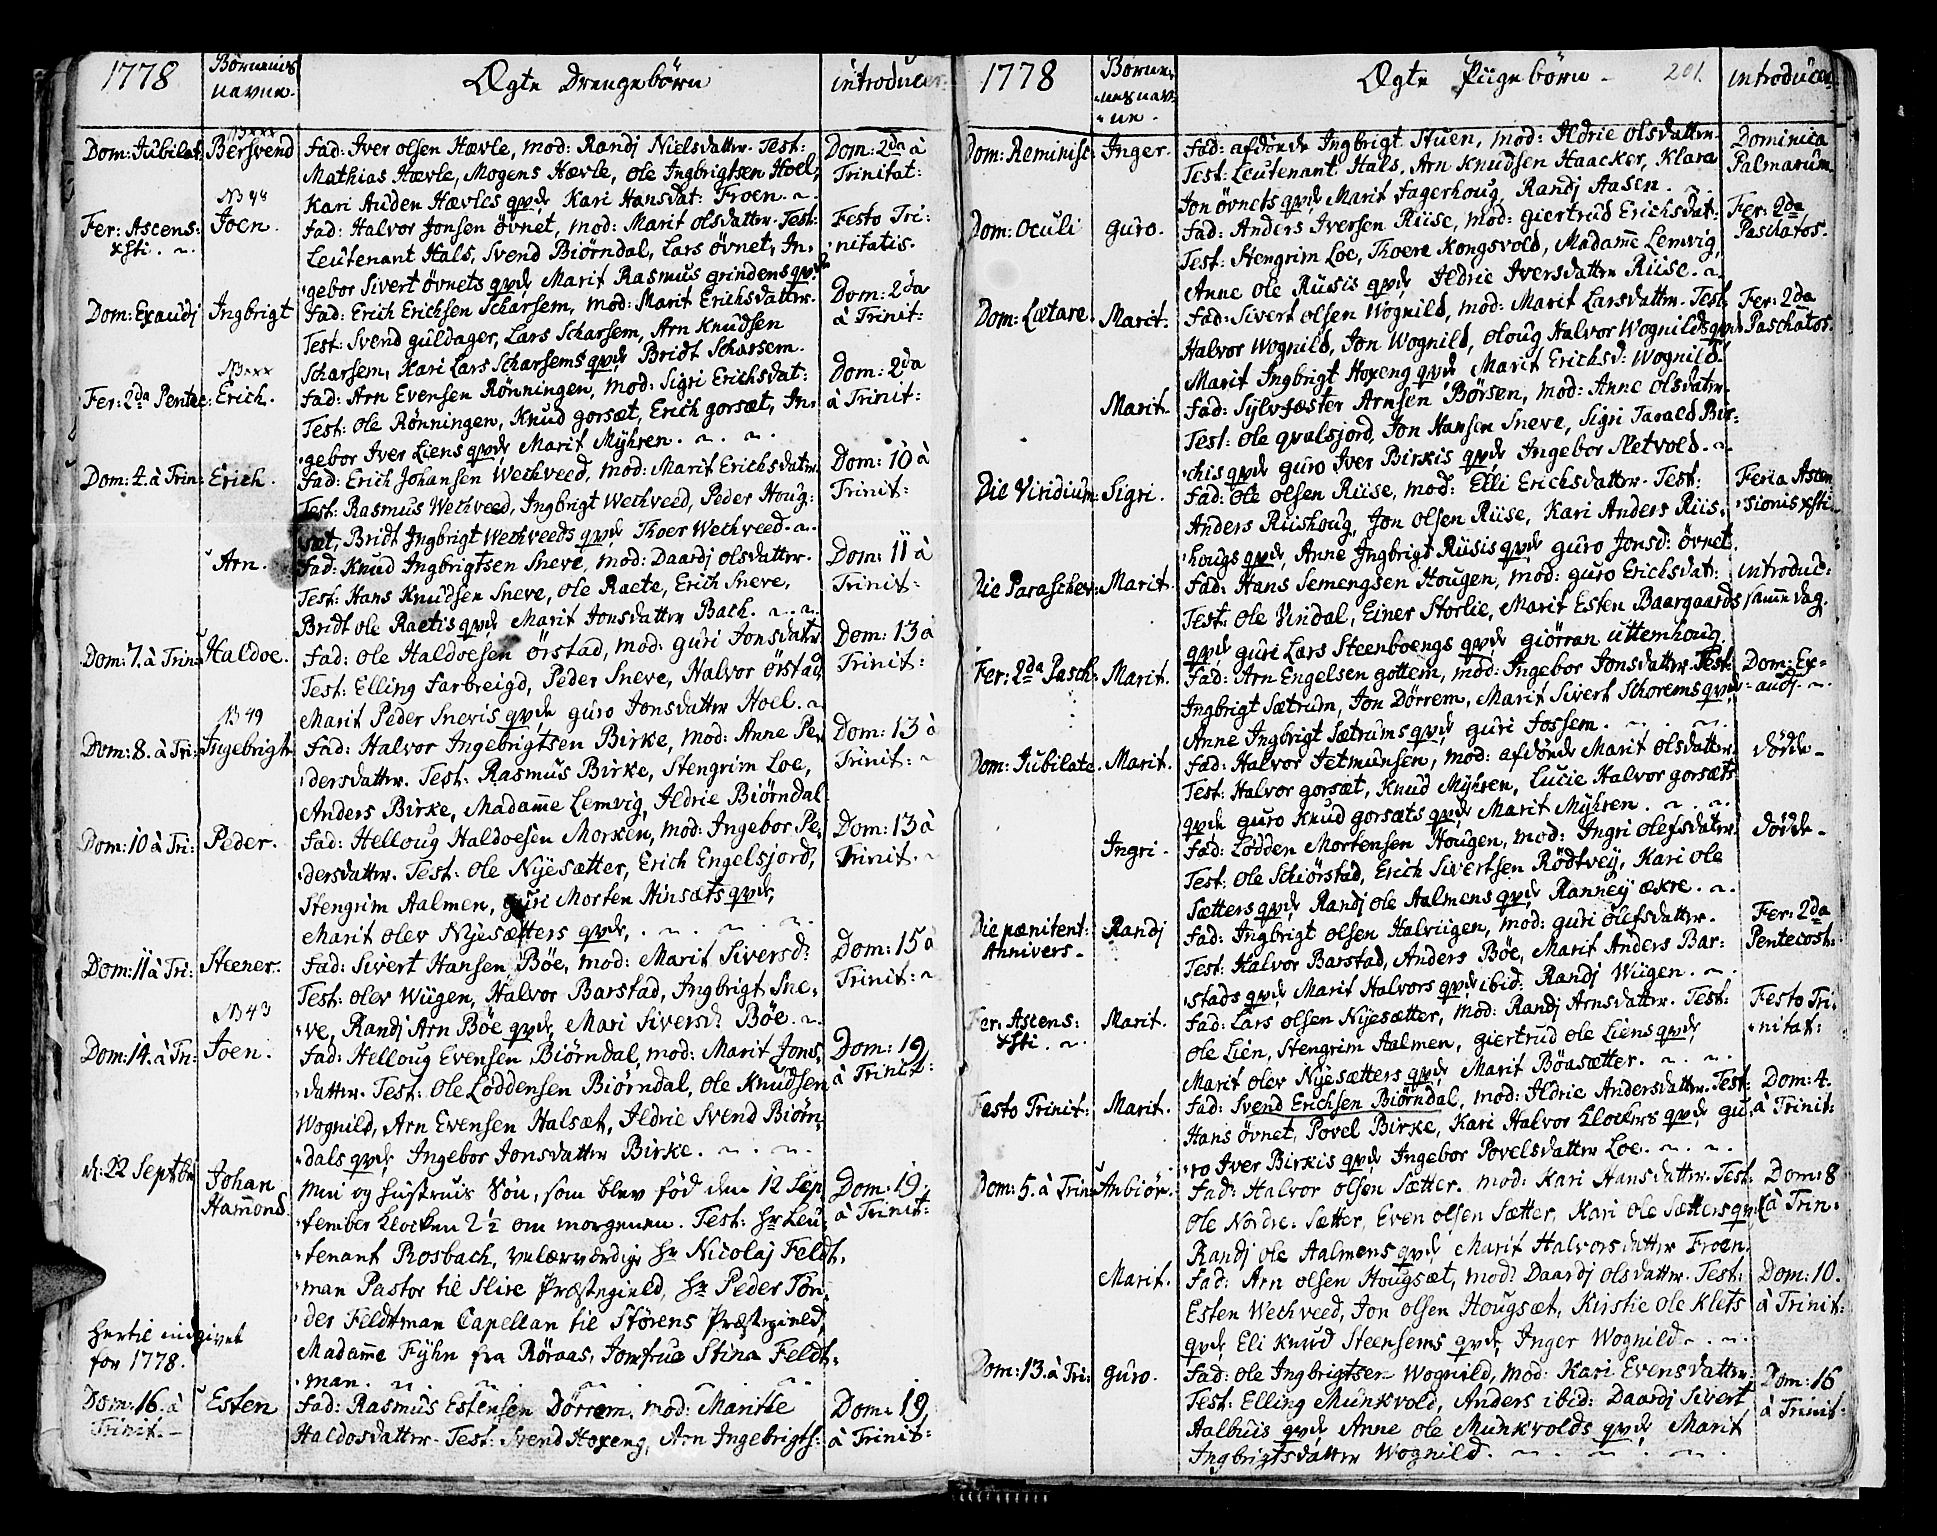 1778
Børnenis
navne.
Ægte Drengebørn
introducer.
Dom: Jubilat:
NB xxx
Bersvend
Fad: Iver olsen Hævle, mod: Randj Nielsdatter. Test:
Mathias Hævle, Mogens Hævle, ole Ingbrigtsen Hoel,
Kari Auden Hævles qvde, Kari Hansdat: Froen. ~
Dom: 2da à
Trinitat:
Fer: Ascens:
xsti. ~.
NB 48
Joen.
Fad: Halvor Jonsen øvnet, mod: Marit olsdatter. Test:
Leutenant Hals, Svend Biörndal, Lars övnet, In,
,gebor Sivert övnets qvde Marit Rasmus grindens qvde
Festo Tri:
,nitatis.
Dom: Exaudj
Ingbrigt
Fad: Erich Erichsen Scharsem, mod: Marit Erichsdatter.
Test: Svend guldager, Lars Scharsem, Arn Knudsen
Scharsem, Kari Lars Scharsems qvde Bridt Scharsem.
Dom: 2da
à Trinit:
Fer: 2da Pentec:
NB xxx
Erich.
Fad: Arn Evensen Rönningen, mod: Sigri Erichsdat:
Test: ole Rönningen, Knud gorsæt, Erich gorsæt, In,
,gebor Iver Liens qvde, Marit Myhren. ~. ~.
Dom: 2da
à Trinit:
Dom: 4. à Trin:
Erich.
Fad: Erich Johansen Wechveed, mod: Marit Erichsdatter.
Test: Rasmus Wechveed, Ingbrigt Wechveed, Peder Houg:
sæt, Bridt Ingbrigt Wechveeds qvde Thoer Wechveed. ~.
Dom: 10 à
Trinit:
Arn.
Fad: Knud Ingbrigtsen Sneve, mod: Daardj olsdatter.
Test: Hans Knudsen Sneve, ole Raete, Erich Sneve,
Bridt ole Raetis qvde, Marit Jonsdatter Bach. ~. ~.
Dom: 11 à
Trinit:
Dom: 7. à Trin:
Haldoe.
Fad: ole Haldoesen örstad, mod: guri Jonsdatr.
Test: Elling Farbreigd, Peder Sneve, Halvor örstad,
Marit Peder Snevis qvde guro Jonsdatter Hoel. ~
Dom: 13 à
Trinit:
Dom: 8. à Tri:
NB 49
Ingebrigt
Fad: Halvor Ingebrigtsen Birke, mod: Anne Pe,
,dersdatter. Test: Rasmus Birke, Stengrim Loe,
Anders Birke, Madame Lemvig, Ildrie Biörndal
Dom: 13 à
Trinit: ~
Dom: 10 à Tri:
Peder.
Fad: Helloug Haldoesen Morken, mod: Ingebor Pe,
,dersdatter. Test: ole Nyesætter, Erich Engelsjord,
Stengrim Aalmen, guri Morten Hinsæts qvde,
Marit olev Nyesætters qvde, . ~ . ~ . ~.
Dom: 13 à
Trinit. ~
Dom: 11 à Tri:
Steener.
Fad: Sivert Hansen Böe, mod: Marit Siversd:
Test: olev Wiigen, Halvor Barstad, Ingbrigt Sne,
,ve, Randj Arn Böe qvde, Mari Siversd: Böe. ~.
Dom: 15 à
Trinit: ~
Dom: 14. à Tri:
NB 43
Joen.
Fad: Helloug Evensen Biörndal, mod: Marit Jons,
,datter. Test: Ole Löddensen Biörndal, ole Knudsen
Wognild, Arn Evensen Halsæt, Ildrie Svend Biörn,
,dals qvde Ingebor Jonsdatter Birke. ~. ~. ~.
Dom: 19
à Trinit:
d: 22 Septbr
Johan
Hammond.
Min og hustrues Sön, som blev föd den 12 Sep,
,tember klocken 2½ om morgenen. Test: Hr Leu,
,tenant Rosbach, velærværdige Hr Nicolaj Feldt,
,man Pastor til Slire Præstegield, Hr Peder Tön,
der Feldtman Capellan til Störens Præstegield,
Madame Fyhn fra Röraas, Jomfrue Stina Feldt,
,man. ~. ~. ~. ~. ~.
Dom: 19.
à Trinit:
Hertil indgivet
for 1778.
Dom: 16. à
Trinit. –
Esten
Fad: Rasmus Estensen Dörrem. mod: Maritte
Haldosdatter. Test: Svend Hoxeng, Arn Ingebrigts:
Dom: 19
à Trinit:
1778
Børne,
,nes nav,
,ne.
Ægte Piigebörn –
201.
introducer.
Dom: Reminisc
Inger.
Fad: afdöde Ingbrigt Stuen, mod: Ildrie olsdatter.
Test: Leutenant Hals, Arn Knudsen Haacker, Klara
Jon övnets qvde Marit Fagerhoug, Randj Aasen. ~.
Dominica
Palmarum.
Dom: Oculi
guro.
Fad: Anders Iversen Riise, mod: giertrud Erichsdat:
Test: Stengrim Loe, Thoere Kongsvold, Madame Lemvig,
Anne Ole Riisis qvde Ildrie Iversdatter Riise. ~.
Fer: 2da
Paschatos.
Dom: Lætare.
Marit.
Fad: Sivert olsen Wognild, mod: Marit Larsdatter. Test:
Halvor Wognild, Jon Wognild, oloug Halvor Wognilds qvde
Marit Ingbrigt Hoxeng qvde Marit Erichsd: Wognild.
Fer: 2da
Paschatos.
Marit.
Fad: Sylvfæster Arnsen Börsen, mod: Anne olsdatr.
Test: ole qvalsjord, Jon Hansen Sneve, Sigri Tarald Bir,
,chis qvde guro Iver Birkis qvde Ingebor Sletvold. ~.
Die Viridium
Sigri.
Fad: ole olsen Riise, mod: Elli Erichsdatter. Test:
Anders Riishoug, Jon olsen Riise, Kari Anders Riis,
,hougs qvde, Anne Ingbrigt Riisis qvde guro Jonsd: övnet.
Feria Ascen
,sionis xsti.
Die Paraschev:
Marit.
Fad: Hans Semengsen Hougen, mod: guro Erichsdat:
Test: ole Vindal, Einer Storlie, Marit Esten Baargaards
qvde guri Lars Steenboengs qvde giörran uttemhoug.
introduc:
samme dag.
Fer: 2da Pasch:
Marit.
Fad: Arn Engelsen gottem, mod: Ingebor Jonsdatter. Test:
Ingbrigt Sætrum, Jon Dörrem, Marit Sivert Schorems qvde
Anne Ingbrigt Sætrums qvde guri Fossem. ~. ~.
Dom: Ex,
,audj. ~.
Dom: Jubilate.
Marit.
Fad: Halvor Jetmunsen, mod: afdöde Marit olsdatter.
Test: Halvor gorsæt, Knud Myhren, Lucie Halvor gorsæts
qvde guro Knud gorsæts qvde Marit Myhren. ~. ~.
dödde –
Ingri.
Fad: Lödden Mortensen Hougen, mod: Ingri olefsdatter.
Test: ole Schiörstad, Erich Sivertsen Rödtvey, Kari ole
Sætters qvde Randj ole Aalmens qvde Ranney ækre. ~.
dödde –
Die pænitent:
Annivers.
Randj
Fad: Ingbrigt olsen Halviigen, mod: guri olefsdatter.
Test: Halvor Barstad, Anders Böe, Marit Anders Bar:
,stads qvde Marit Halvors qvde ibid: Randj Wiigen. ~.
Fer: 2da
Pentecost:
Fer: Ascens:
xsti. ~.
Marit.
Fad: Lars olsen Nyesætter, mod: Randj Arnsdatter. Test:
Ole Lien, Stengrim Aalmen, giertrud ole Liens qvde,
Marit olev Nyesætters qvde Marit Böasætter. ~. ~.
Festo Tri:
,nitat:
Festo Trinit:
Marit.
Fad: Svend Erichsen Biörndal, mod: Ildrie Andersdatter. Test:
Hans övnet, Povel Birke, Kari Halvor klockers qvde gu,
,ro Iver Birkis qvde Ingebor Povelsdatter Loe. ~. ~.
Dom: 4.
à Trinit:
Dom: 5. à Trin:
Anbiör.
Fad: Halvor olsen Sætter. mod: Kari Hansdatter. Test
Ole Nordre: Sætter, Even olsen Sætter, Kari ole Sætters qvde
Randj ole Aalmens qvde Marit Halvorsdatter Froen.
Dom: 8
à Trin:
Marit.
Fad: Arn olsen Hougsæt, mod: Daardj olsdatter. Test:
Esten Wechveed, Jon olsen Hougsæt, Kirstie ole Klets
qvde Eli Knud Steensems qvde, Inger Wognild ~. ~.
Dom: 10.
à Trinit:
Dom: 13. à Tri:
guro.
Fad: ole Ingbrigtsen Wognild, mod: Kari Evensdatter,
Test: Elling Munkvold, Anders ibid: Daardj Sivert
Aalbuis qvde Anne ole Munkvolds qvde Marit
Ingbrigtsdatter Wognild. ~. ~. ~. ~.
Dom: 16
à Trinit: